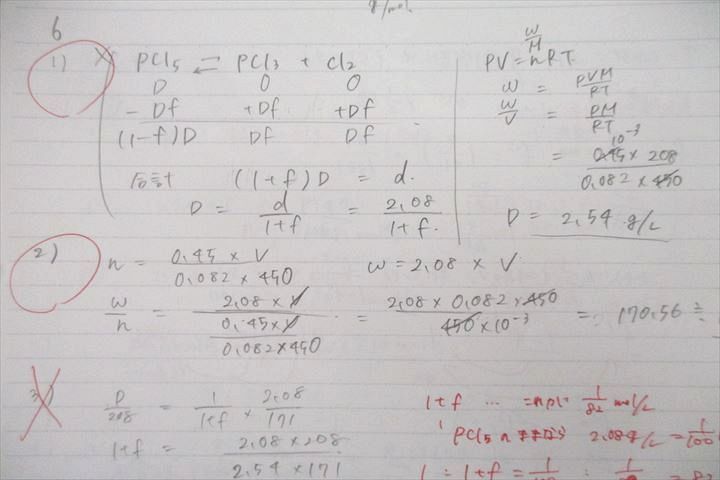 g/mol
6
1) PCl5 ⇌ PCl3 + Cl2
D 0 0
- Df +Df +Df
(1-f)D Df Df
合計 (1+f)D = d.
D = d/(1+f) = 2.08/(1+f).
PV = w/M nRT.
w = PVM/RT
w/V = PM/RT
= 0.45 10-3 × 208 / 0.082 × 450
D = 2.54 g/L
2) n = 0.45 × V / 0.082 × 450 w = 2.08 × V.
w/n = 2.08 × V / (0.45 × V / 0.082 × 450) = 2.08 × 0.082 × 450 / 450 × 10-3 = 170.56 ≒
3) D/208 = 1/(1+f) × 2.08/171
1+f = 2.08 × 208 / 2.54 × 171
1+f … 1/82 mol/L
PCl5 2.08g/L = 1/100
1 : 1+f = 1/100 :